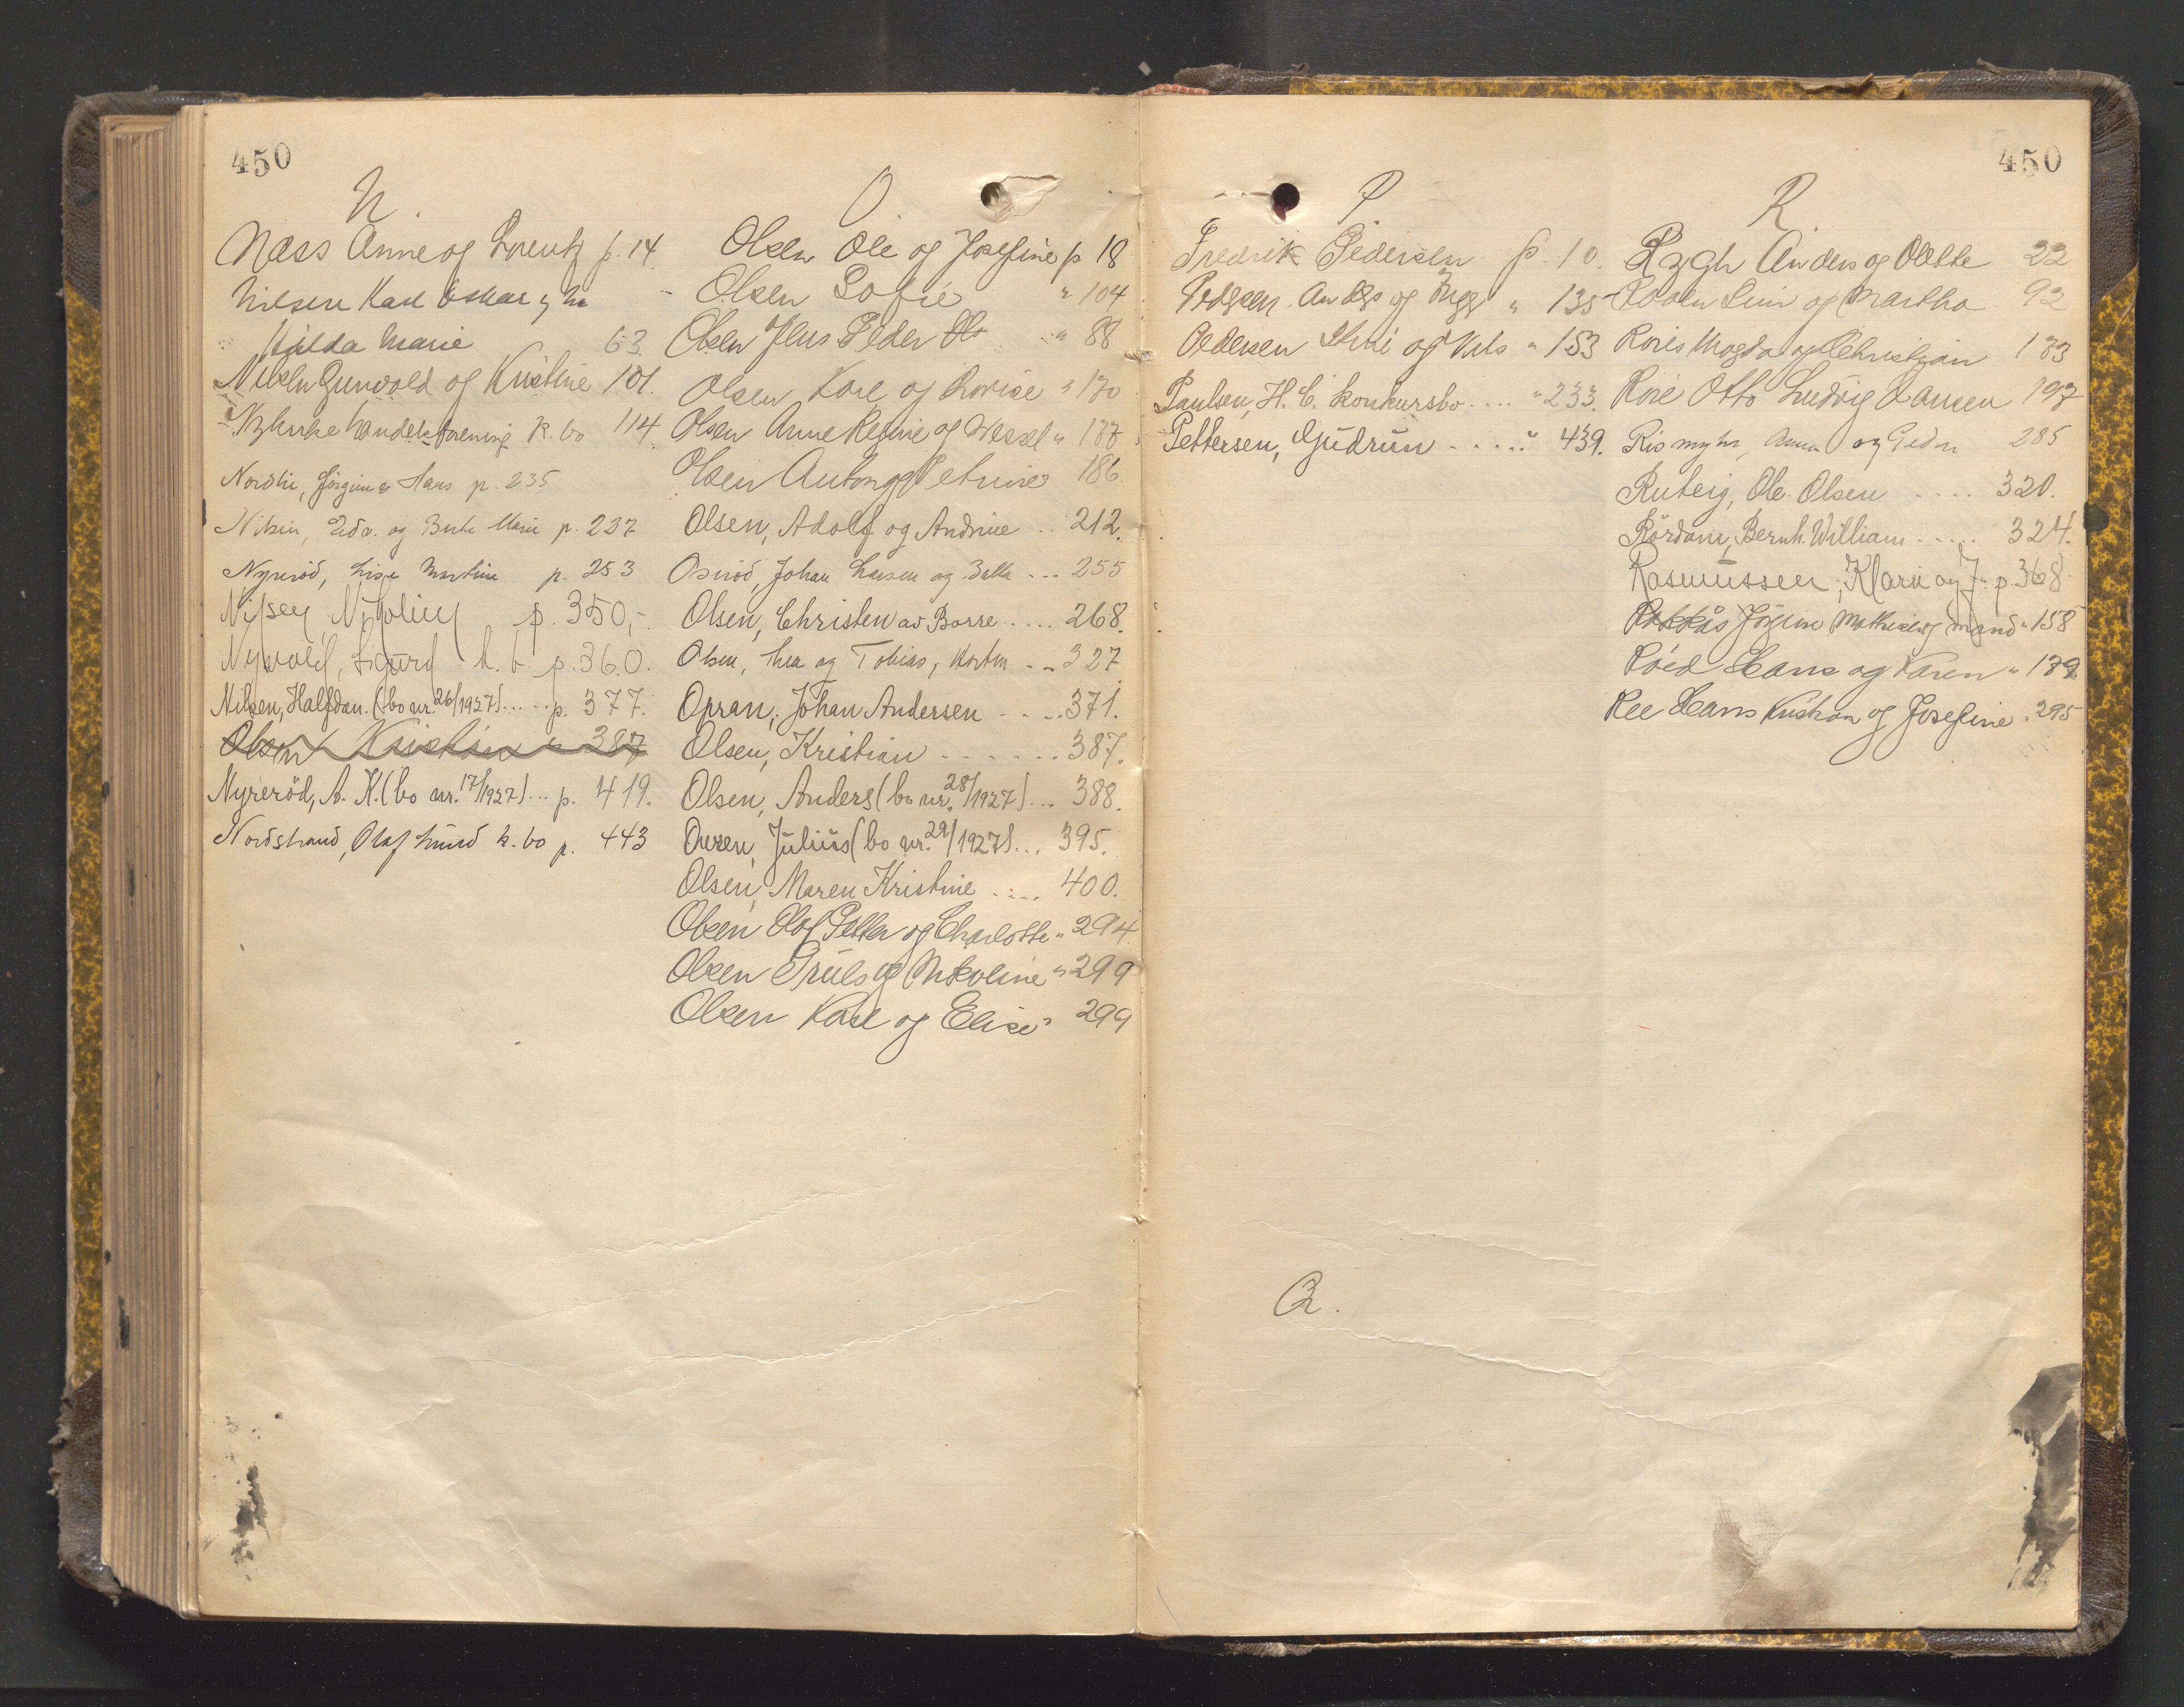 450
N.
Næss Anne og Lorentz p. 14.
Nilsen Karl Oskar og hu
Hilda Marie 63.
Nilsen Gunvald og Kristine 101.
Handelsforening k. bo 114.
Nordli, Jørgine & Hans p. 235
Nilsen, Edv. og Berte Marie p. 237
Nyrerød, Lise Martine p. 253
Nilsen p. 350,-
Nyvold, Sigurd k. b. p. 360.
Nilsen, Halfdan. (bo nr. 26/1927) ..... p. 377.
Olsen Kristian 387
Nyrerød, A. K. (bo nr. 17/1927) ... p. 419.
Nordstrand, Olaf Lund k. bo p. 443
O.
Olsen Ole og Josefine p 18
Olsen Sofie " 104
Olsen Jens Peder " 88
Olsen Karl og Lovise " 170
Olsen Anne Regine og Wessel " 177
Olsen Anton og Petrine 186
Olsen, Adolf og Andrine .. 212.
Osnød, Johan Larsen og Balla ... 255
Olsen, Christen av Borre .... 268.
Olsen, Thea og Tobias, Horten .. 327
Opran, Johan Andersen .... 371.
Olsen, Kristian ....... 387.
Olsen, Anders (bo nr. 28/1927) ... 388.
Ovren, Julius (bo nr. 29/1927) ... 395.
Olsen, Maren Kristine .... 400.
Olsen Olof Petter og Charlotte " 294.
Olsen Truls og Nikoline " 299
Olsen Karl og Elise " 299
450
P
Fredrik Pedersen p. 10.
Pedersen Anders og Inger " 135
Pedersen Trine og Nils " 153
Paulsen, H. C. konkursbo .... " 233.
Pettersen, Gudrun ..... " 439.
Q.
R
Rygh Anders og Olette 22
og Martha 92
Roris Magda og Christian 183
Roie Otto Ludvig Hansen 197
Rismyhr, Anna og Peder 285
Ruteig, Ole Olsen .... 320.
Rørdam, Bernh. William ..... 324.
Rasmussen, Klara og J. p. 368.
Jørgine Mathisen og mand " 158
Røed Hans og Karen " 179
Ree Hans Kristian og Josefine " 295